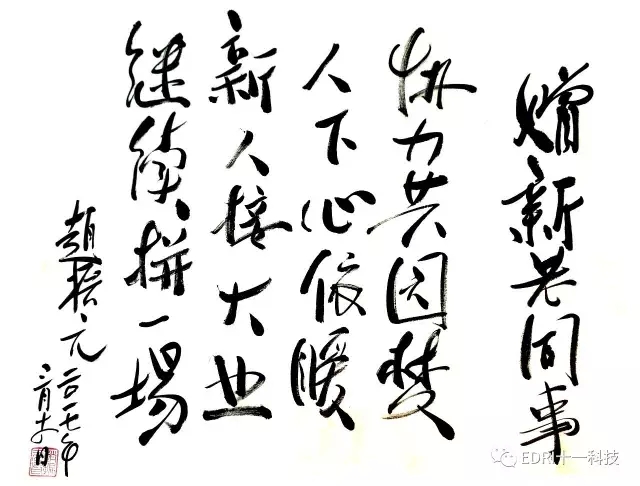 赠新老同事
协力共圆梦
人下心依暖
新人接大业
继续拼一场
趙振元 二〇一七年
EDRI十一科技